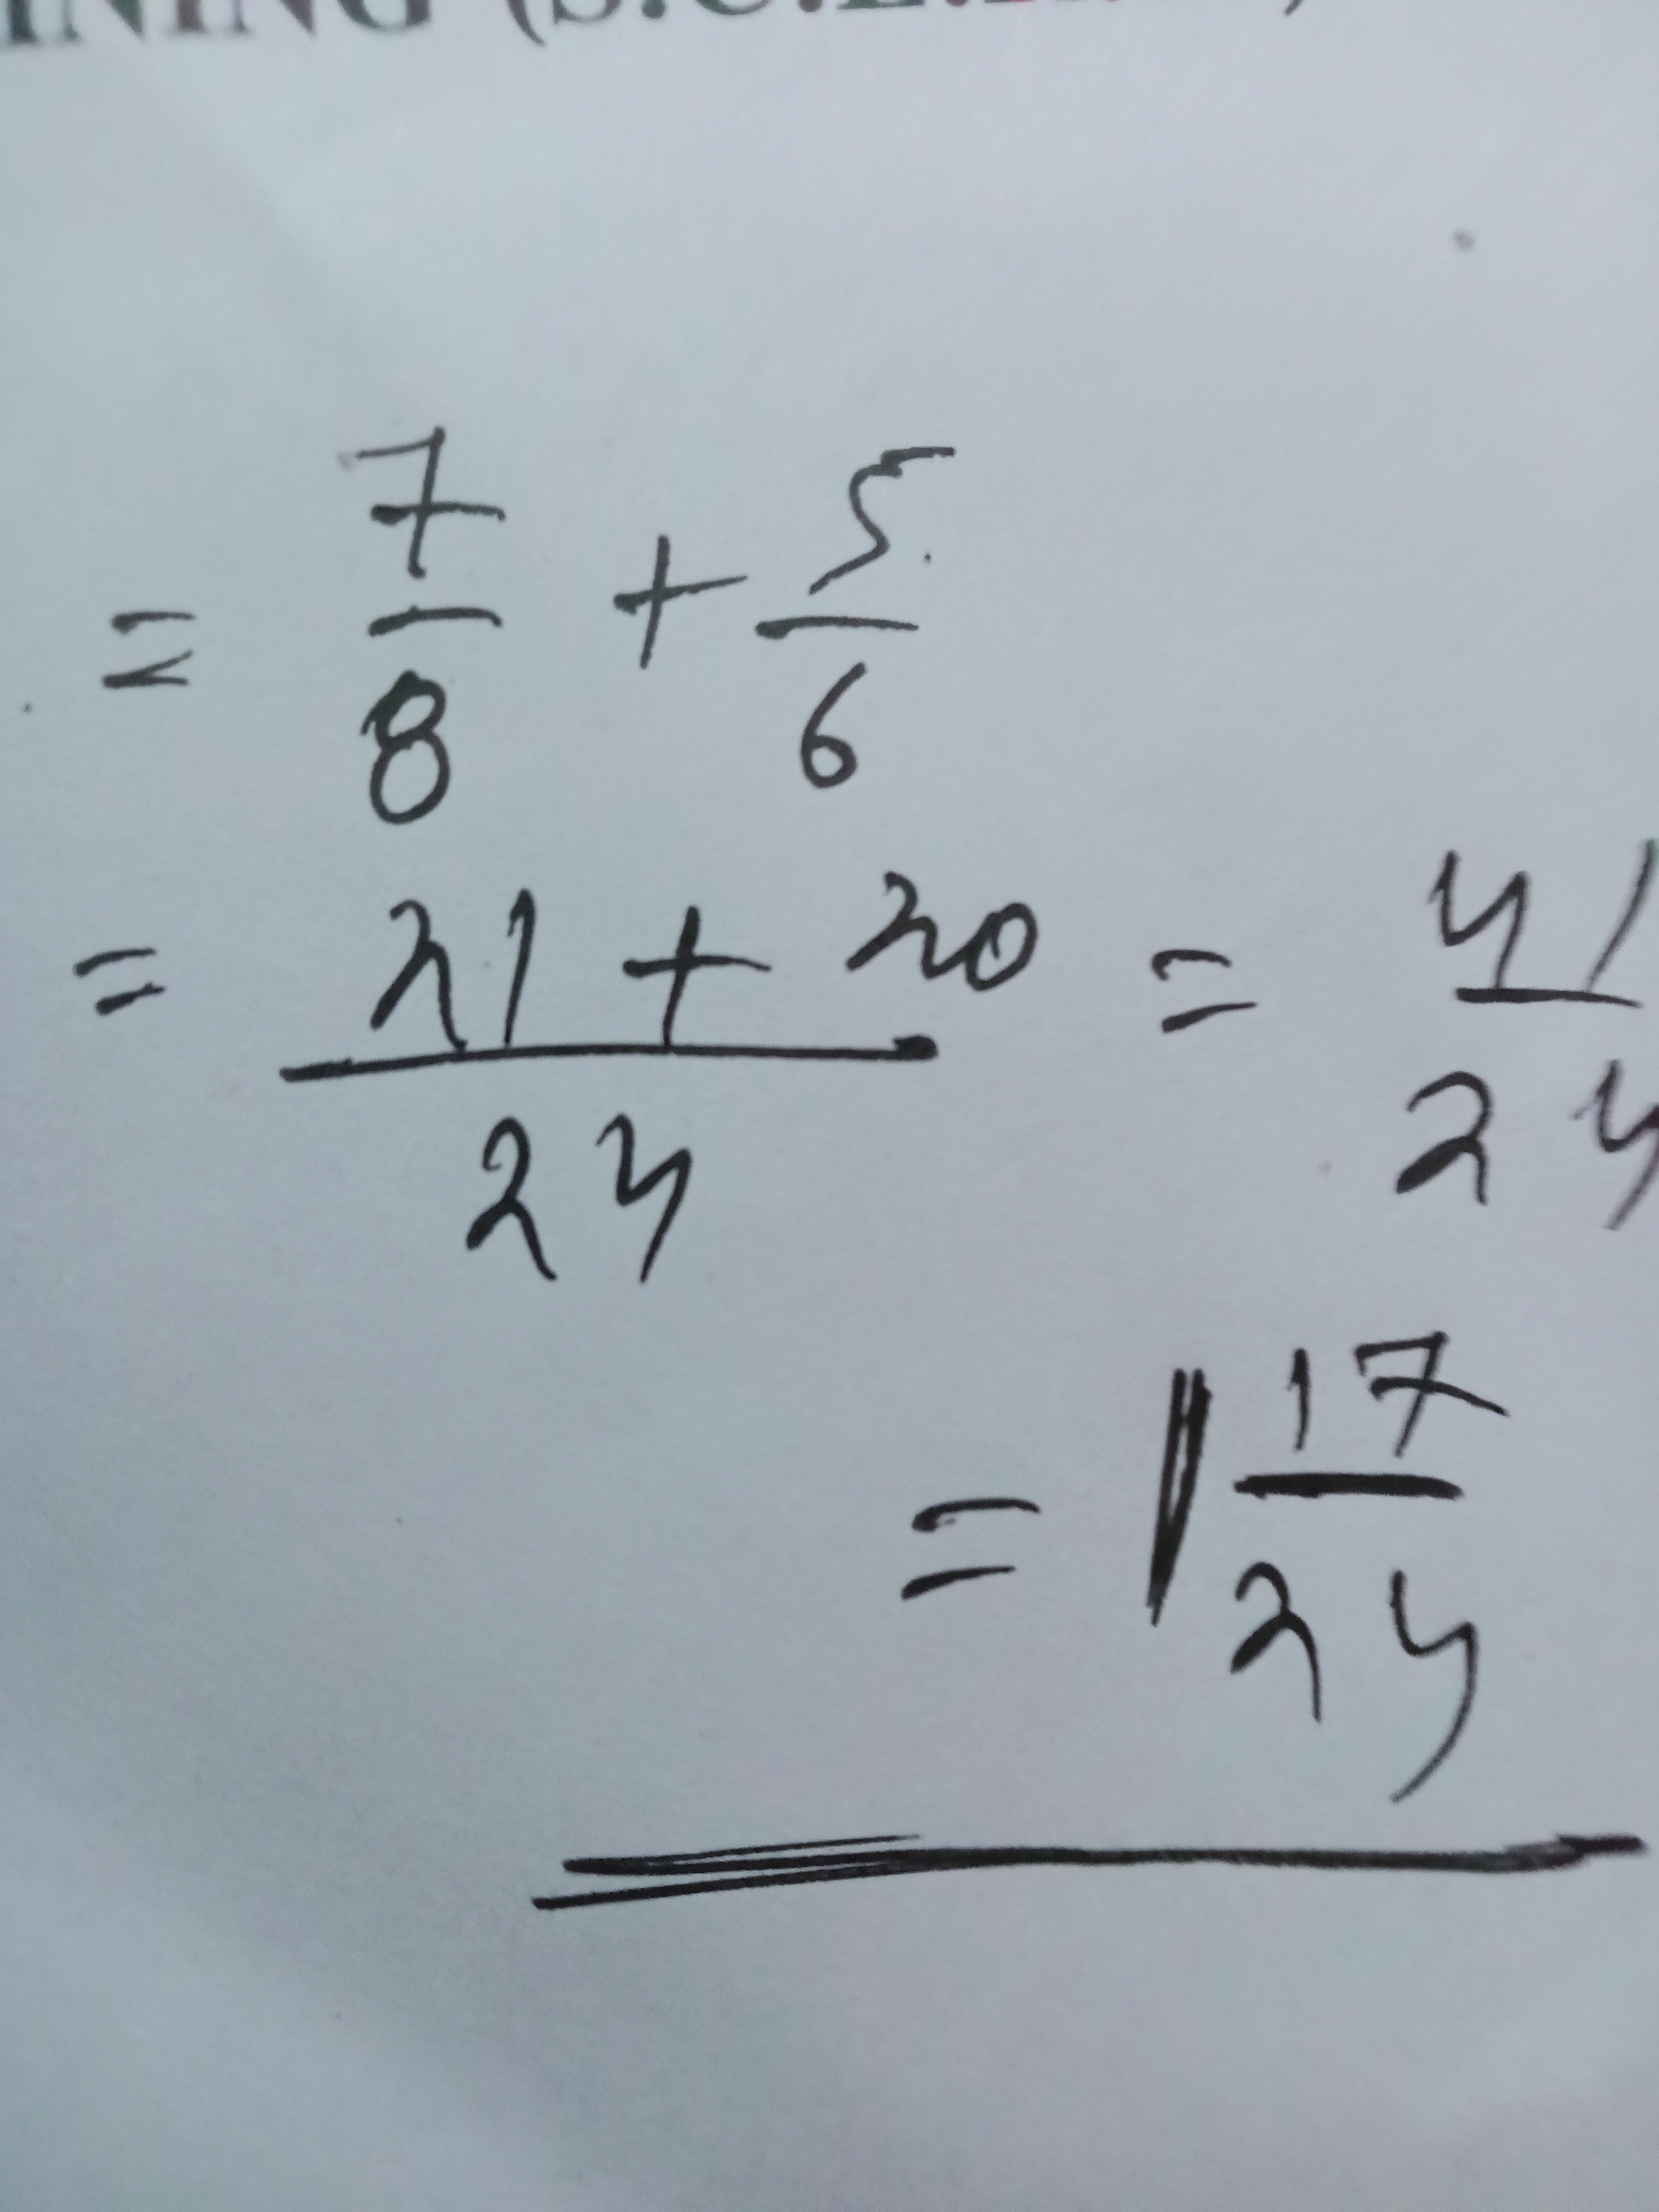 INING (S.
= 7/8 + 5/6
= 21 + 20/24 = 41/24
= 1 17/24